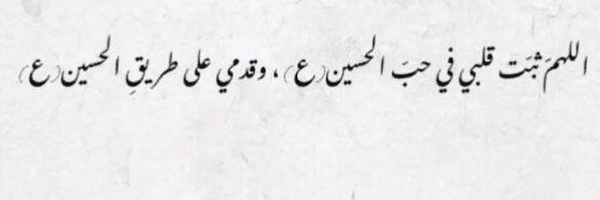 اللهمَ ثبَت قلبي في حبَ الحسين(ع)، وقدمي على طريقِ الحسين(ع)